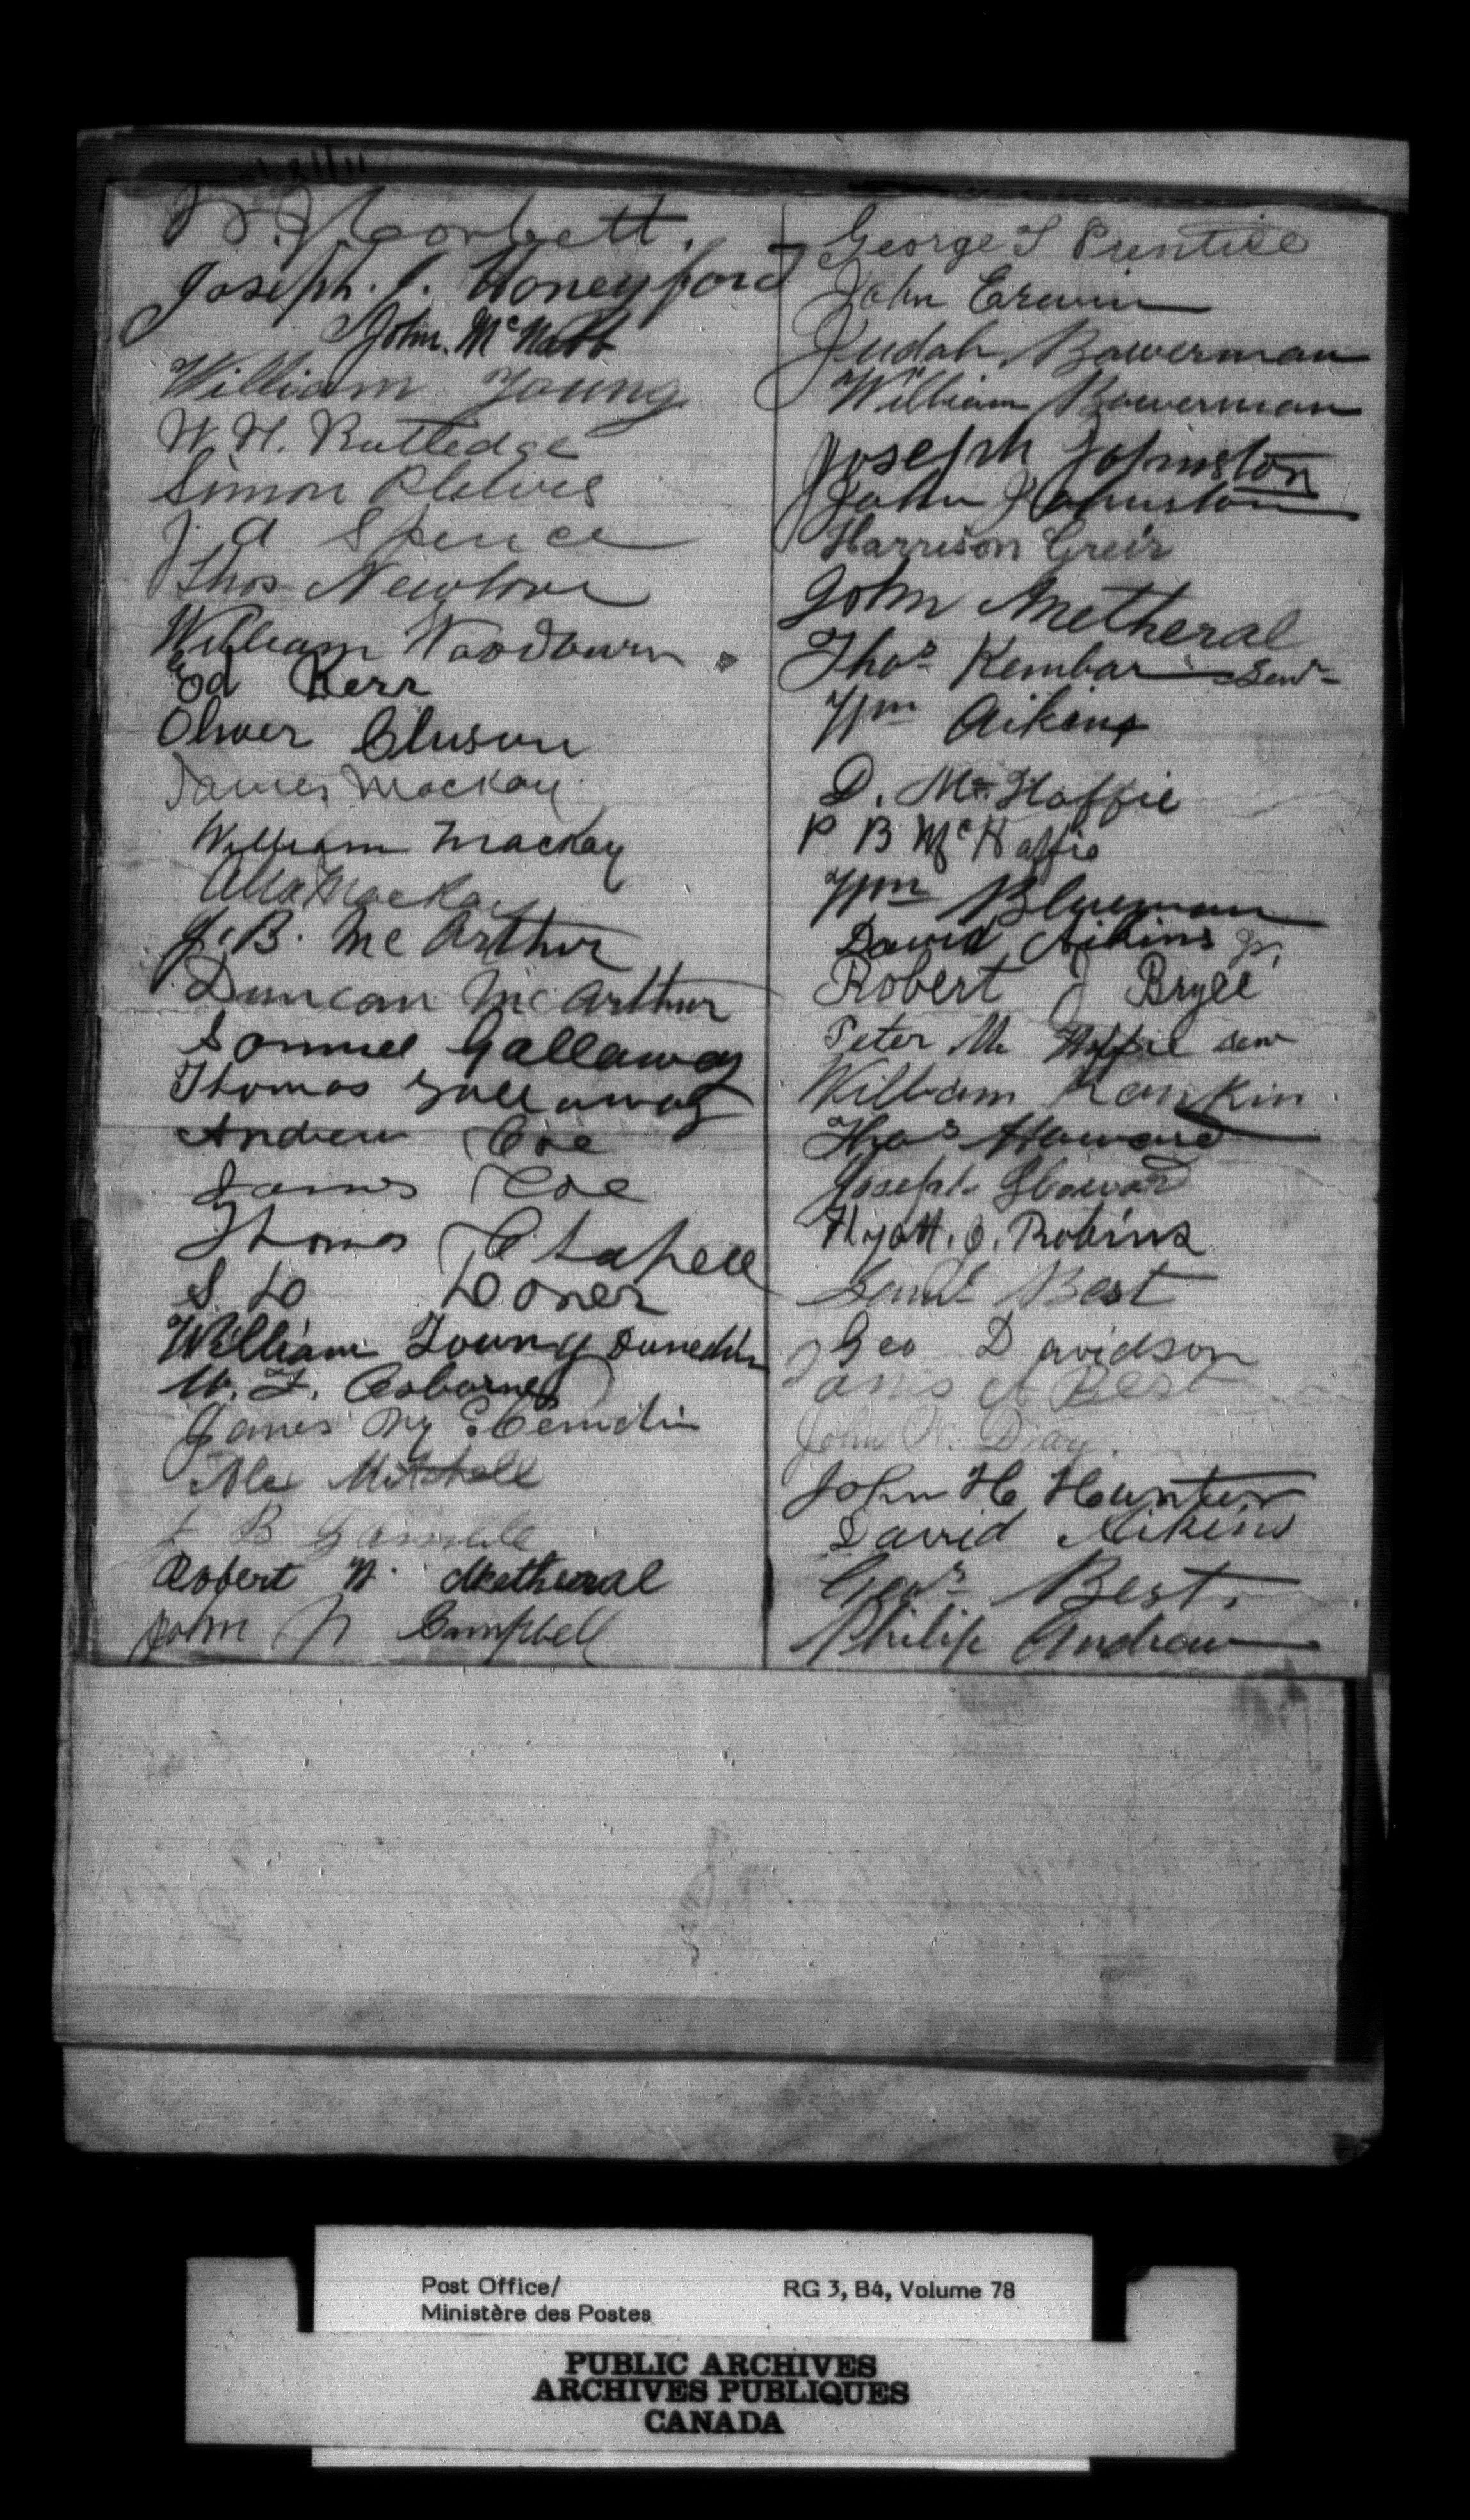 Corbett.
Joseph. J. Honeyford
John. McNabb
William Young
W. H. Rutledge
Simon
J. A Spence
Thos Newlove
William Woodburn
Ed Kerr
Oliver Cluson
James Mackay
William Mackay
Alla Mackay
J. B. McArthur
Duncan McArthur
Samuel Gallaway
Thomas Gallaway
Andrew Coe
James Coe
Thomas Chapell
S D Doner
William Young Dunedin
W. F. Osborne
James
Alex Mitchell
B Gamble
Robert N. Metheral
John N Campbell
George S Prentice
John Erwin
Judah Bowerman
William Bowerman
Joseph Johnston
John Johnston
Harrison Greir
John Metheral
Thos Kembar Senr
Wm Aikins
D. Mc.Haffie
P B McHaffie
Wm Blueman
David Aikins Jr,
Robert J Bryce
Peter Mc Haffie sen
William Rankin
Thos Howard
Joseph Howard
Hyatt. J. Robins
Saml Best
Geo Davidson
James A Best
John W. Day.
John H Hunter
David Aikens
Best,
Philip Andrew
Post Office/ RG 3, B4, Volume 78
Ministère des Postes
PUBLIC ARCHIVES
ARCHIVES PUBLIQUES
CANADA